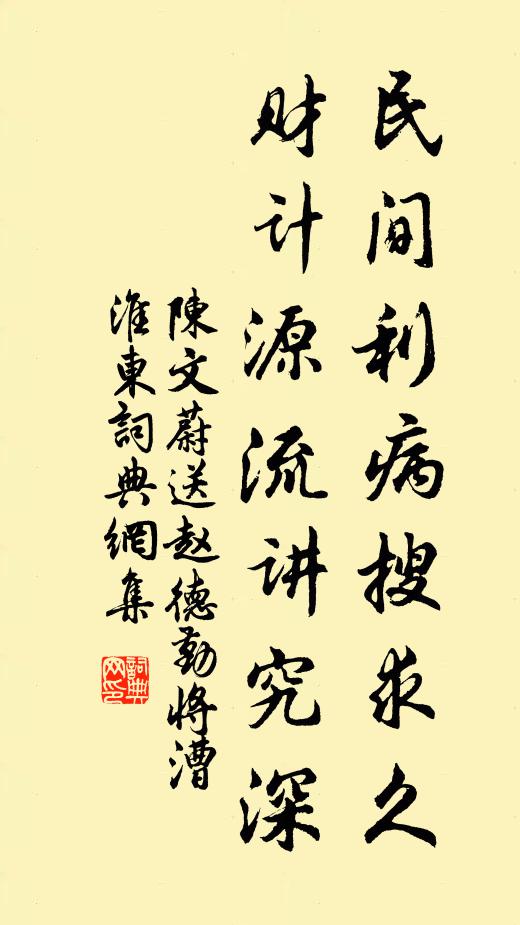 民间利病搜求久
财计源流讲究深
陳文蔚送赵德勤将漕
淮東詞典網集
詞典
网印